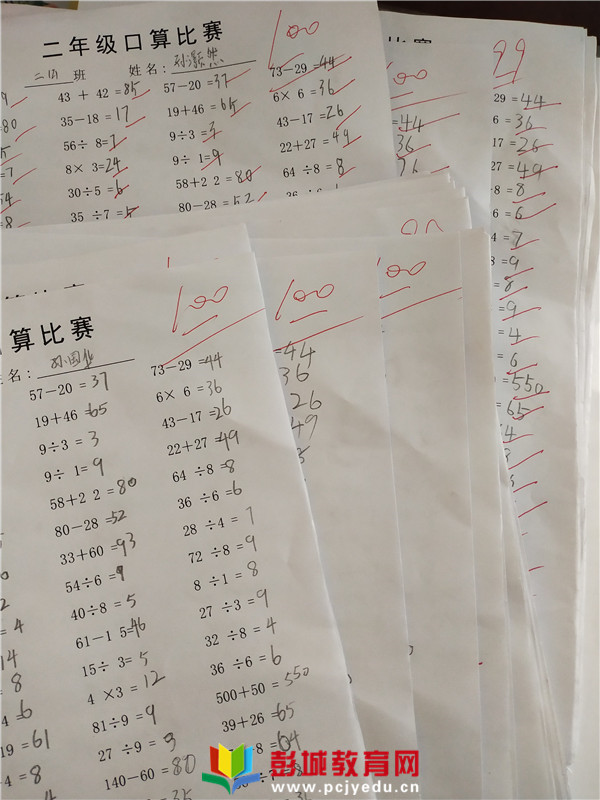 二年级口算比赛
100
班 姓名：孙颢然
43 + 42 =85
57－20 = 37
73－29 =44
35－18 = 17
19＋46 = 65
6× 6 = 36
56÷ 8=7
9÷3 = 3
43－17 =26
8× 3=24
9÷ 1=9
22＋27 =49
30÷5 = 6
58＋2 2 = 80
64 ÷8 = 8
35 ÷7 = 5
80－28 = 52
99
29 =44
= 36
17 = 26
27 =49
8 = 8
6 = 6
4 = 7
8 =9
= 8
=9
= 4
= 6
= 550
= 65
=44
36
26
算比赛
100
57－20 = 37
73－29 =44
19＋46 =65
6× 6 = 36
9÷3 = 3
43－17 =26
9÷ 1 = 9
22＋27 =49
58＋2 2 = 80
64 ÷8 =8
80－28 =52
36 ÷6 = 6
33＋60 =93
28 ÷4 = 7
54÷6 = 9
72 ÷8 = 9
40÷8 = 5
8 ÷1 = 8
61－1 5=46
27 ÷3 = 9
15÷ 3= 5
32 ÷8 = 4
4 ×3 = 12
36 ÷6 = 6
81÷9 = 9
500＋50 = 550
27 ÷9 = 3
39＋26 =65
140－60 = 80
100
=44
36
26
49
100
彭城教育网
www.pcjyedu.cn